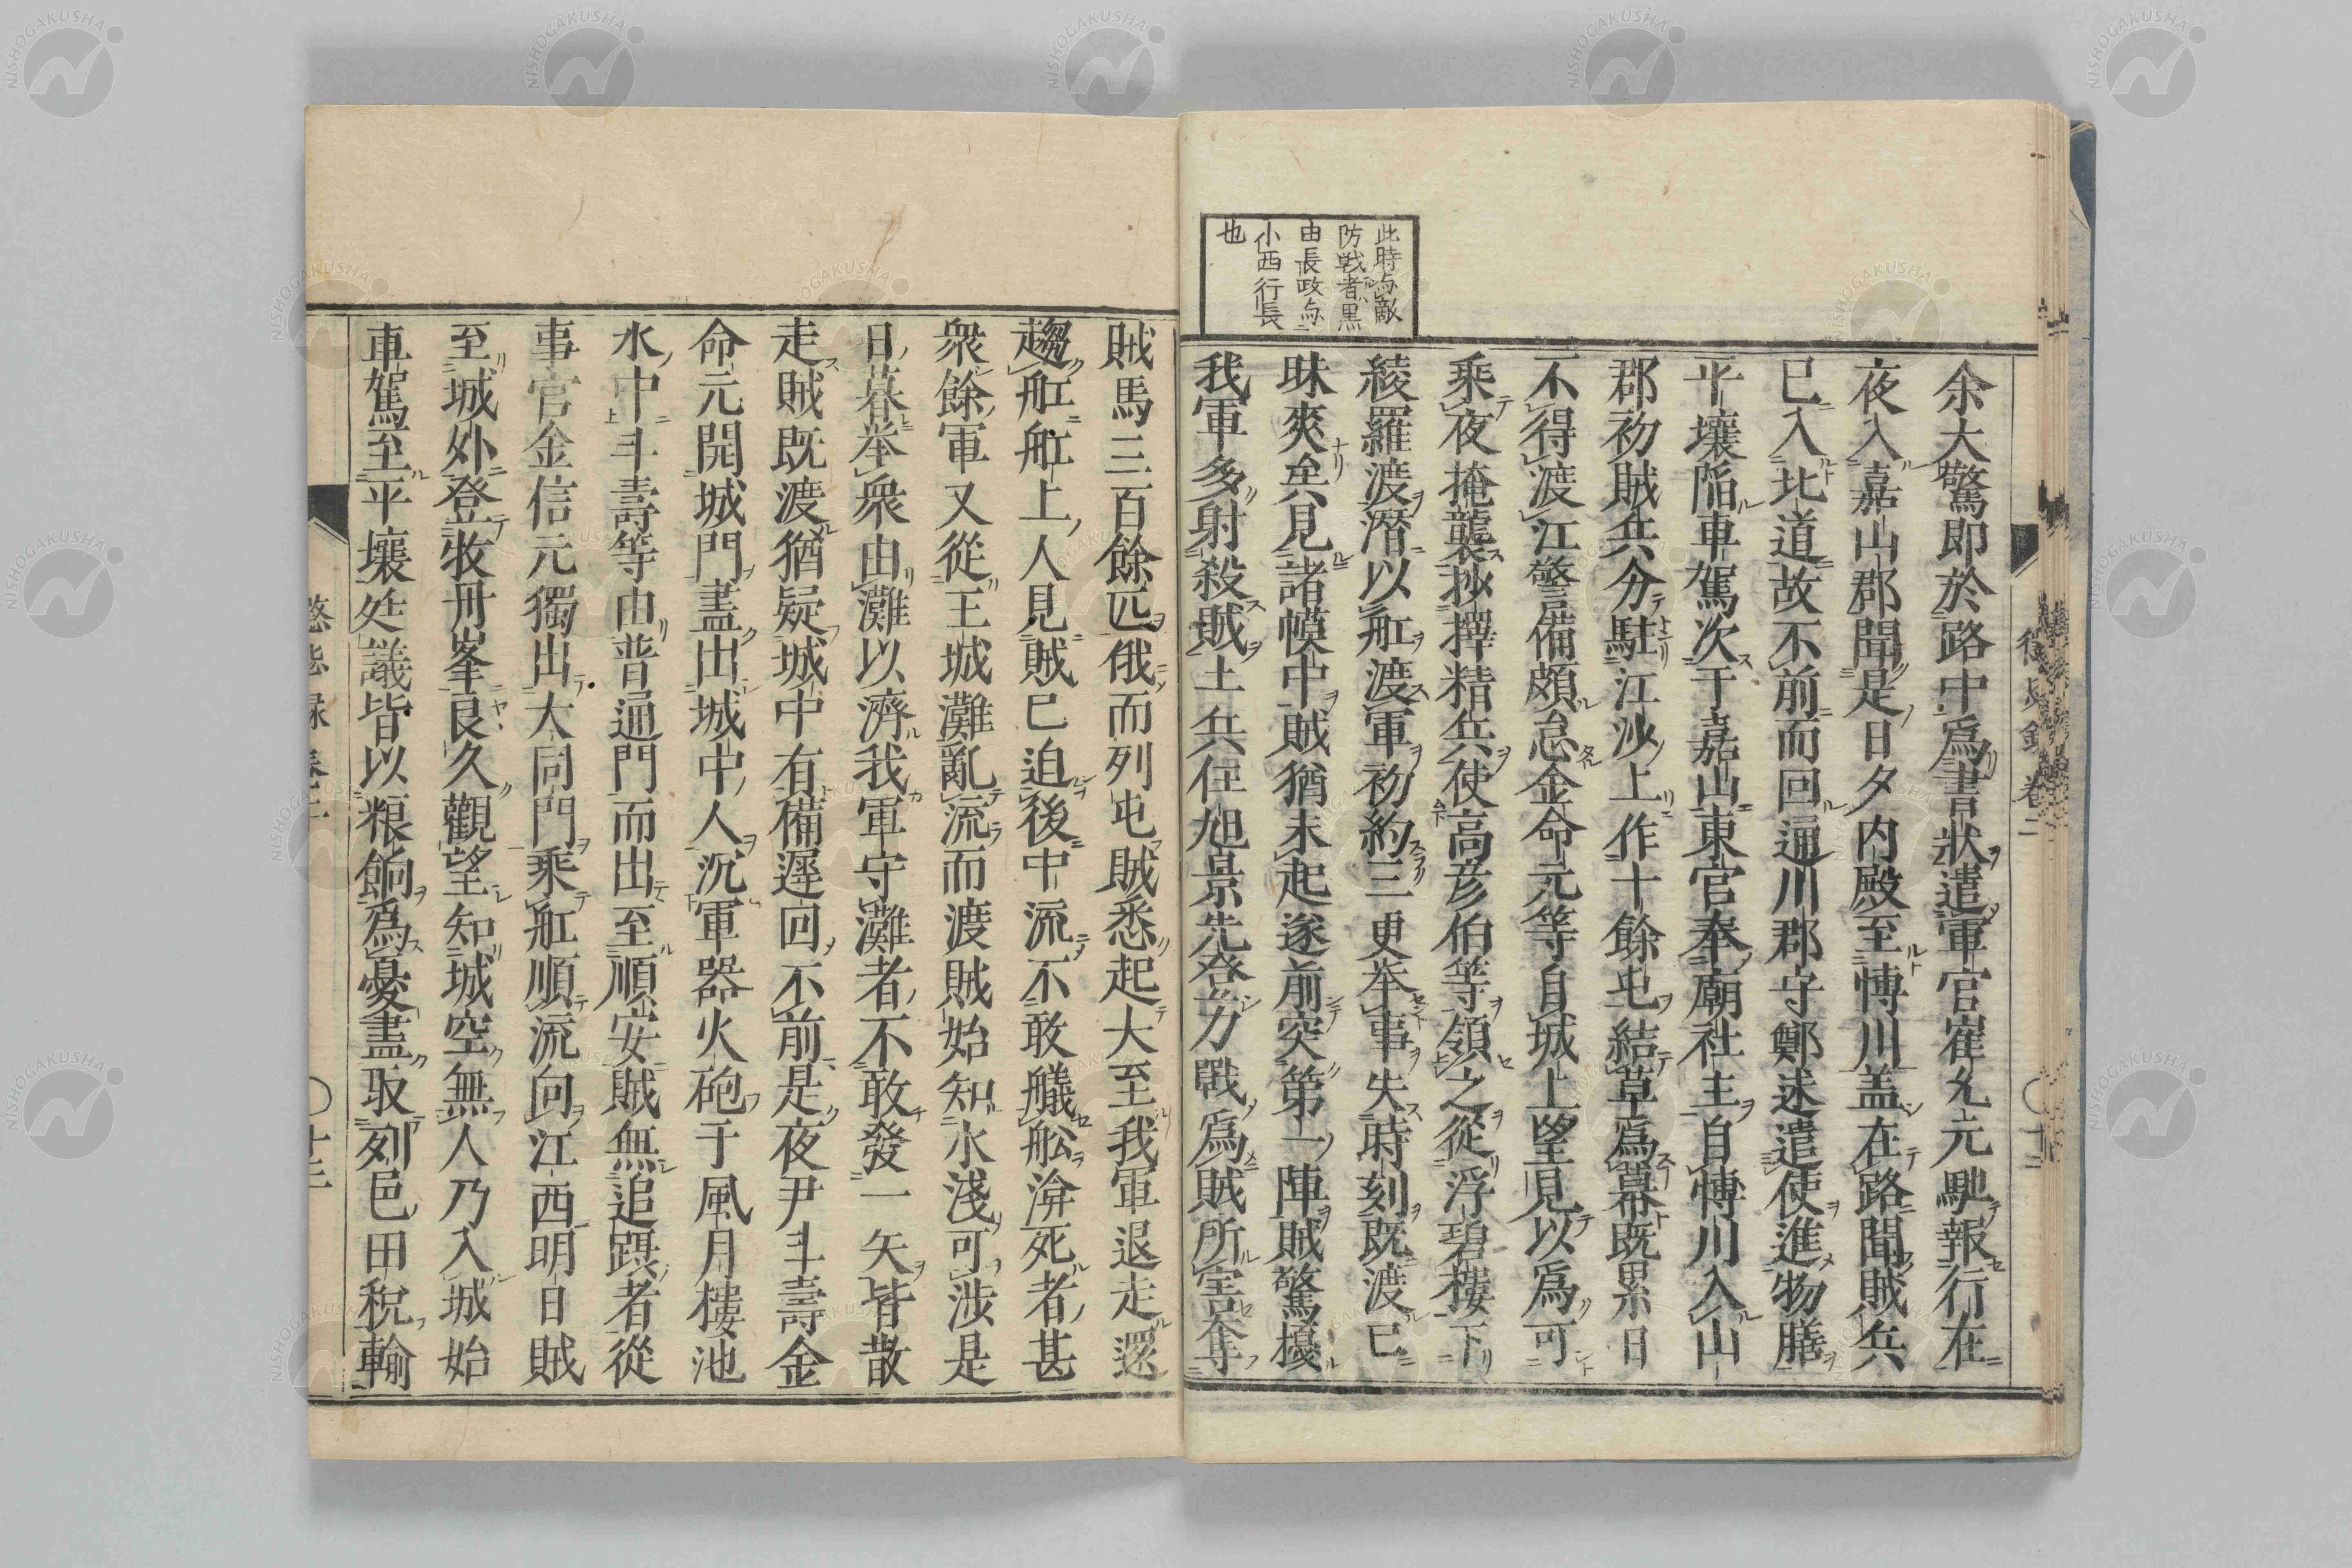 此時与敵
防戦者黒
田長政与
小西行長
也
余大驚即於路中爲書狀遣軍官崔允元馳報行在
夜入嘉山郡聞是日夕内殿至博川盖在路聞賊兵
已入北道故不前而回通川郡守鄭述遣使進物膳
平壤陷車駕次于嘉山東官奉廟社主自博川入山
郡初賊兵分駐江沙上作十餘屯結草爲幕既累日
不得渡江警備頗怠金命元等自城上望見以爲可
乘夜掩襲抄擇精兵使高彦伯等領之從浮碧樓下
綾羅渡潜以舡渡軍初約三更挙事失時刻既渡已
昧爽矣見諸幙中賊猶未起遂前突第一陣賊驚擾
我軍多射殺賊土兵任旭景先登力戰爲賊所害奪
賊馬三百餘匹俄而列屯賊悉起大至我軍退走還
趨舡舡上人見賊已迫後中流不敢艤舩渰死者甚
衆餘軍又從王城灘亂流而渡賊始知水淺可渉是
日暮挙衆由灘以濟我軍守灘者不敢發一矢皆散
走賊既渡猶疑城中有備遲回不前是夜尹斗壽金
命元開城門盡出城中人沉軍器火砲于風月樓池
水中斗壽等由普通門而出至順安賊無追躡者從
事官金信元獨出大同門乘舡順流向江西明日賊
至城外登牧丹峯良久觀望知城空無人乃入城始
車駕至平壤廷議皆以粮餉爲憂盡取列邑田稅輸